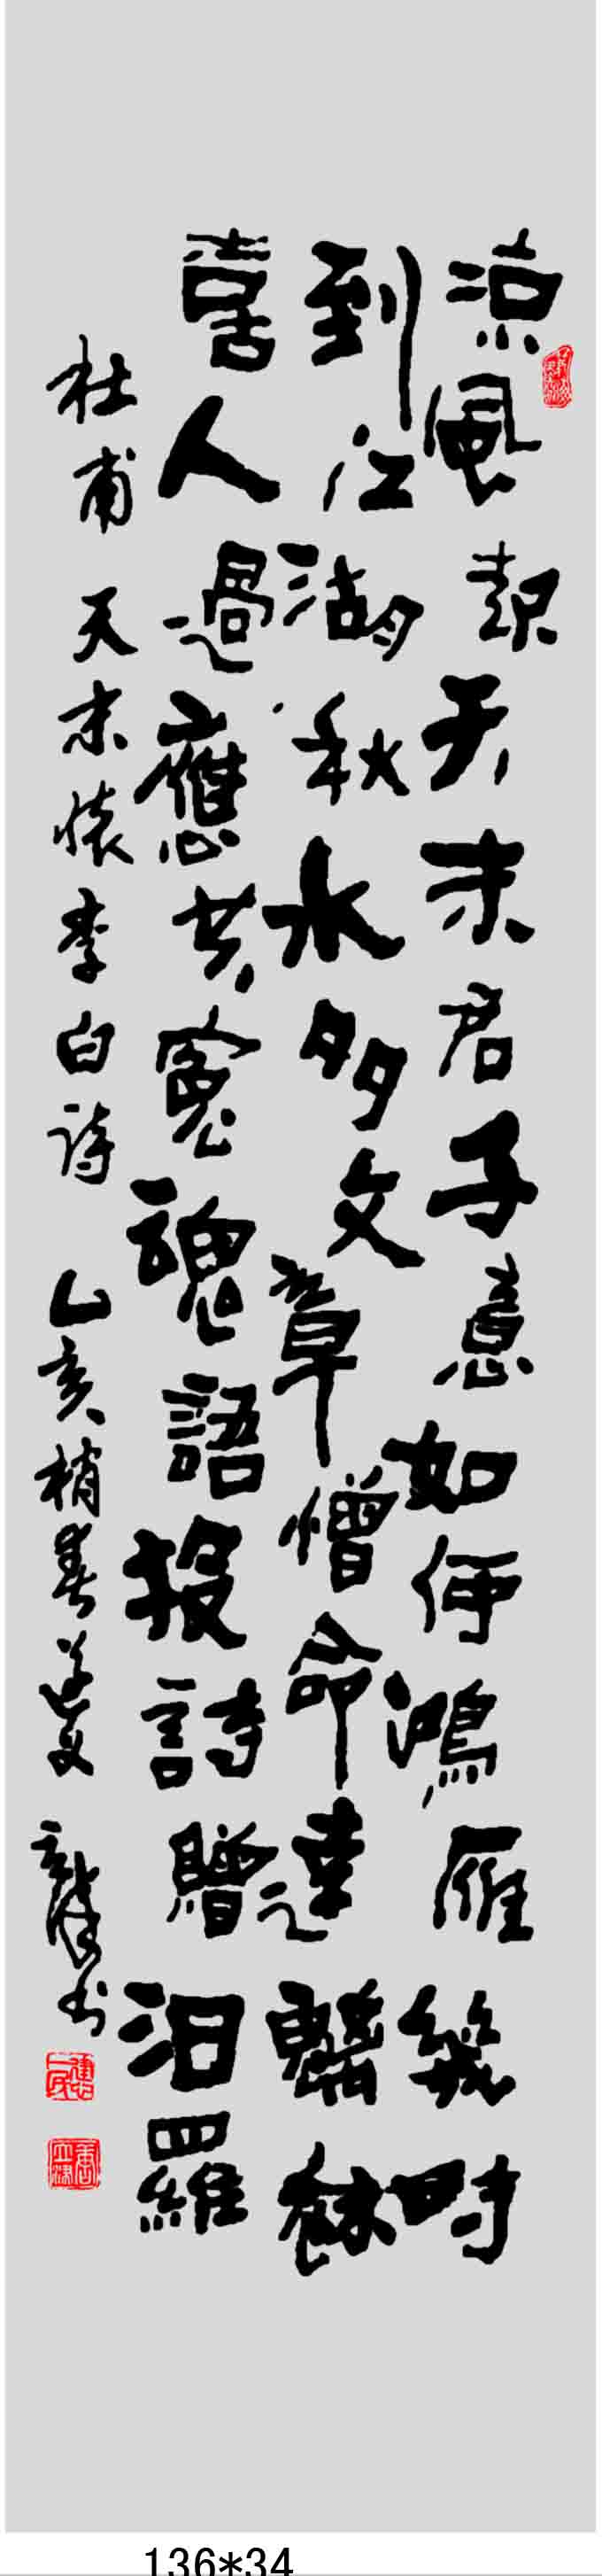 涼風起天末君子意如何鴻雁幾時
到江湖秋水多文章憎命達魑魅
喜人過應共冤魂語投詩贈汨羅
杜甫天末懷李白詩 乙亥梢春
136*34